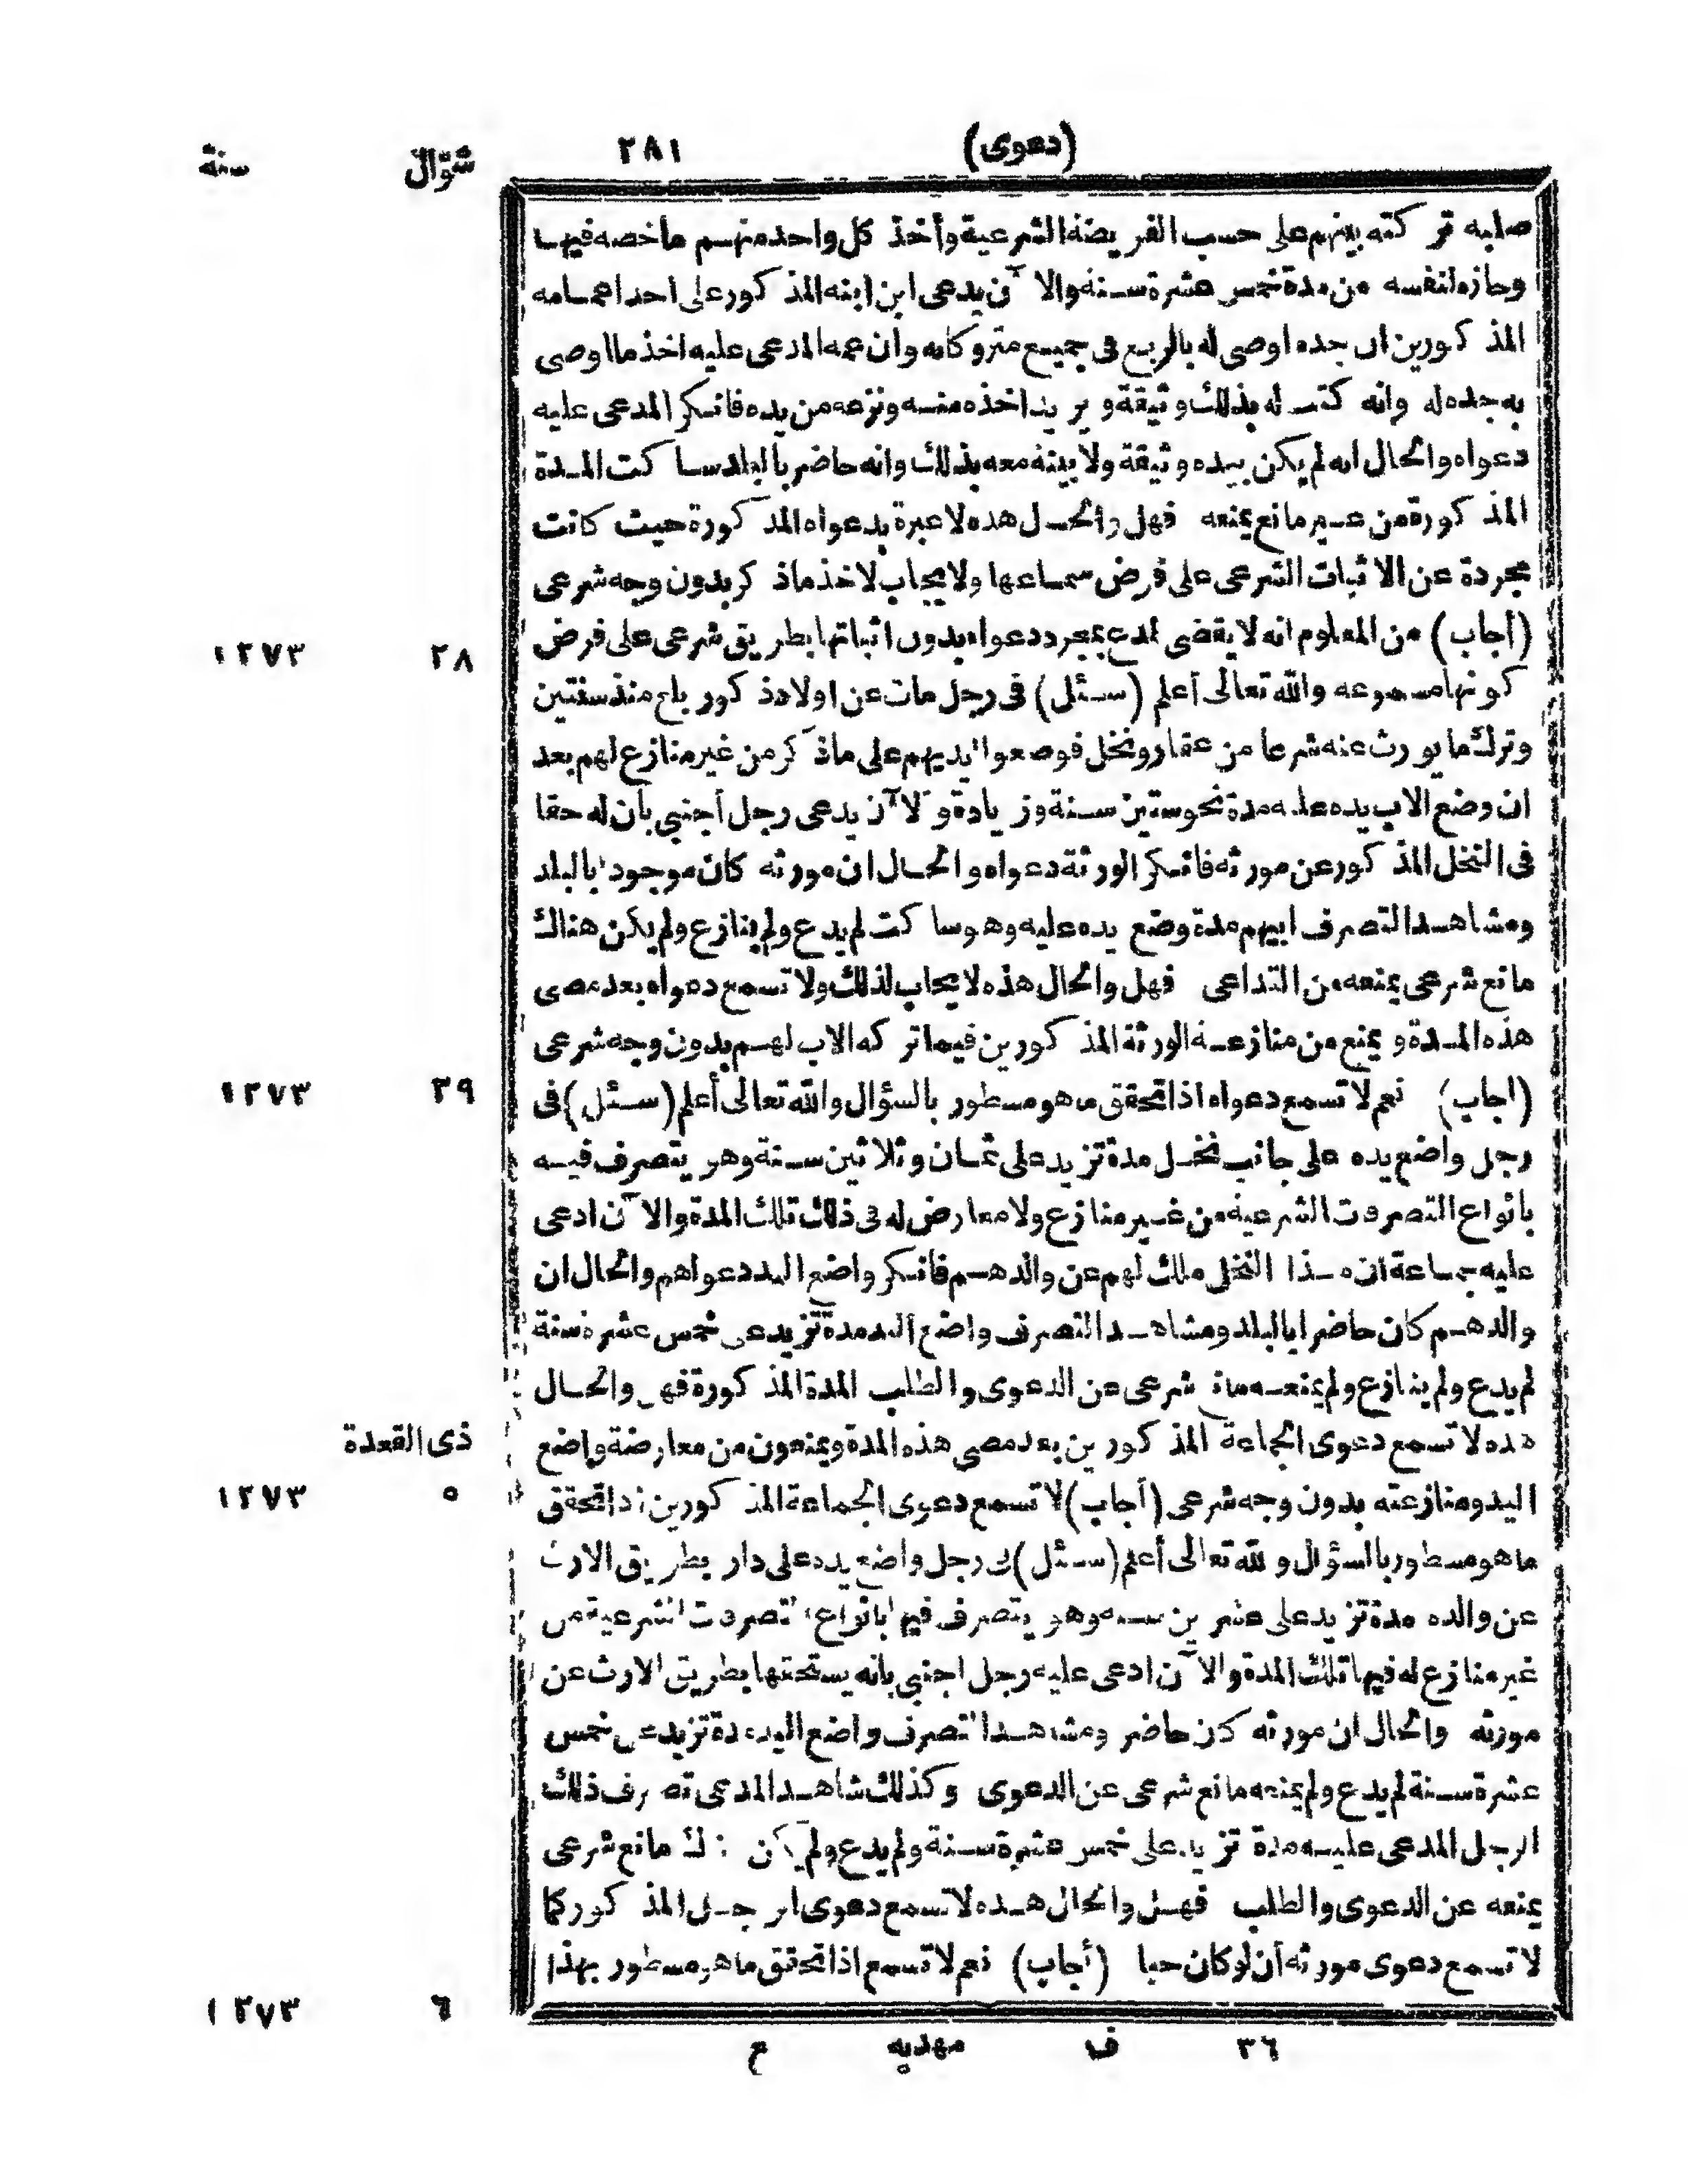 (دعوى) ٢٨١ شوّال سنة
صلبه تركته بينهم على حسب الفريضة الشرعية وأخذ كل واحد منهم ما خصه فيها
وحازه لنفسه من مدة خمس عشرة سنة والآن يدعى ابن ابنه المذكور على احد اعمامه
المذكورين ان جده اوصى له بالربع فى جميع متروكاته وان عمه المدعى عليه اخذ ما اوصى
به جده له وانه كتب له بذلك وثيقة ويريد اخذه منه ونزعه من يده فانكر المدعى عليه
دعواه والحال انه لم يكن بيده وثيقة ولا بينة معه بذلك وانه حاضر بالبلد ساكت المدة
المذكورة من غير مانع يمنعه فهل والحال هذه لا عبرة بدعواه المذكورة حيث كانت
مجردة عن الاثبات الشرعى على فرض سماعها ولا يجاب لاخذ ماذكر بدون وجه شرعى
(أجاب) من المعلوم انه لا يقضى لمدع بمجرد دعواه بدون اثباتها بطريق شرعى على فرض ٢٨ ١٢٧٣
كونها مسموعه والله تعالى أعلم (سئل) فى رجل مات عن اولاد ذكور بلغ منذ سنتين
وترك ما يورث عنه شرعا من عقار ونخل فوضعوا ايديهم على ماذكر من غير منازع لهم بعد
ان وضع الاب يده عليه مدة نحو ستين سنة وزيادة والآن يدعى رجل أجنبي بأن له حقا
فى النخل المذكور عن مورثه فانكر الورثة دعواه والحال ان مورثه كان موجودا بالبلد
ومشاهدا لتصرف ابيهم مدة وضع يده عليه وهو ساكت لم يدع ولم ينازع ولم يكن هناك
مانع شرعى يمنعه من التداعى فهل والحال هذه لا يجاب لذلك ولا تسمع دعواه بعد مضى
هذه المدة ويمنع من منازعة الورثة المذكورين فيما تركه الاب لهم بدون وجه شرعى
(اجاب) نعم لا تسمع دعواه اذا تحقق ما هو مسطور بالسؤال والله تعالى أعلم (سئل) فى ٢٩ ١٢٧٣
رجل واضع يده على جانب نخل مدة تزيد على ثمان وثلاثين سنة وهو يتصرف فيه
بانواع التصرفات الشرعية من غير منازع ولا معارض له فى ذلك تلك المدة والآن ادعى
عليه جماعة ان هذا النخل ملك لهم عن والدهم فانكر واضع اليد دعواهم والحال ان
والدهم كان حاضرا بالبلد ومشاهدا لتصرف واضع اليد مدة تزيد على خمس عشرة سنة
لم يدع ولم ينازع ولم يمنعه مانع شرعى عن الدعوى والطلب المدة المذكورة فهل والحال
هذه لا تسمع دعوى الجماعة المذكورين بعد مضى هذه المدة ويمنعون من معارضة واضع ذى القعدة
اليد ومنازعته بدون وجه شرعى (أجاب) لا تسمع دعوى الجماعة المذكورين اذا تحقق ٥ ١٢٧٣
ما هو مسطور بالسؤال والله تعالى أعلم (سئل) فى رجل واضع يده على دار بطريق الارث
عن والده مدة تزيد على عشرين سنه وهو يتصرف فيها بانواع التصرفات الشرعية من
غير منازع له فيها تلك المدة والآن ادعى عليه رجل اجنبي بانه يستحقها بطريق الارث عن
مورثه والحال ان مورثه كان حاضر ومشاهدا لتصرف واضع اليد مدة تزيد على خمس
عشرة سنة لم يدع ولم يمنعه مانع شرعى عن الدعوى وكذلك شاهد المدعى تصرف ذلك
الرجل المدعى عليه مدة تزيد على خمس عشرة سنة ولم يدع ولم يكن هناك مانع شرعى
يمنعه عن الدعوى والطلب فهل والحال هذه لا تسمع دعوى الرجل المذكور كما
لا تسمع دعوى مورثه أن لو كان حيا (أجاب) نعم لا تسمع اذا تحقق ما هو مسطور بهذا ٦ ١٢٧٣
٣٦ ف مهديه ع